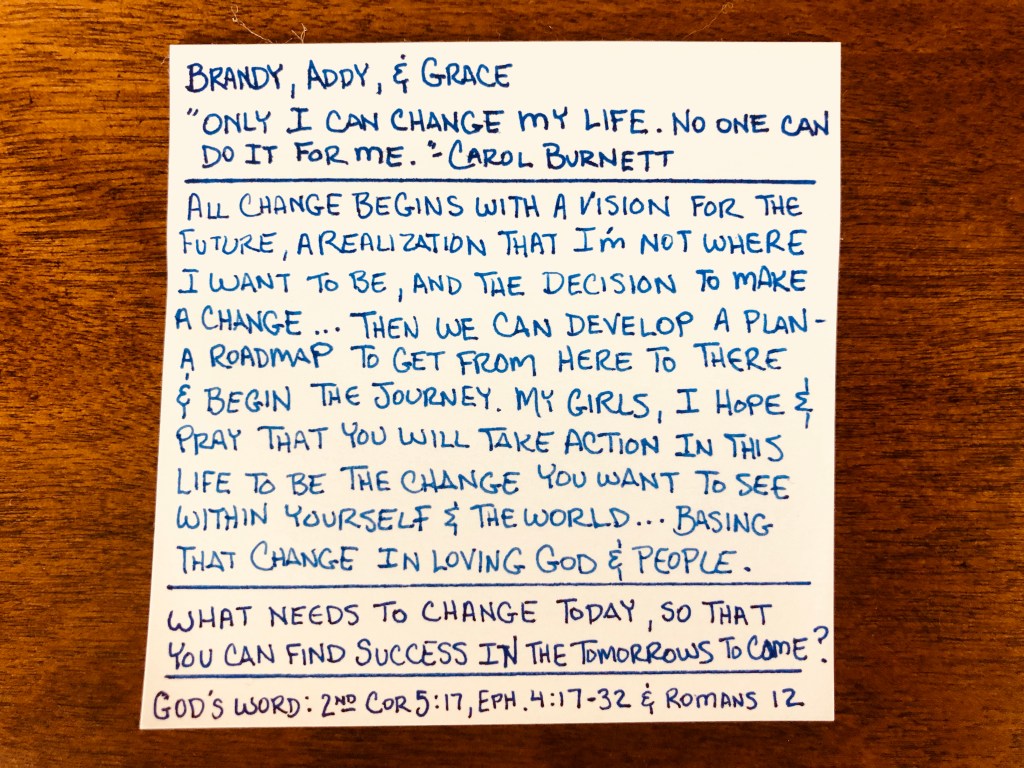 BRANDY, ADDY, & GRACE
"ONLY I CAN CHANGE MY LIFE. NO ONE CAN
DO IT FOR ME."-CAROL BURNETT
ALL CHANGE BEGINS WITH A VISION FOR THE
FUTURE, A REALIZATION THAT I'm NOT WHERE
I WANT TO BE, AND THE DECISION TO MAKE
A CHANGE... THEN WE CAN DEVELOP A PLAN-
A ROADMAP TO GET FROM HERE TO THERE
& BEGIN THE JOURNEY. MY GIRLS, I HOPE &
PRAY THAT YOU WILL TAKE ACTION IN THIS
LIFE TO BE THE CHANGE YOU WANT TO SEE
WITHIN YOURSELF & THE WORLD... BASING
THAT CHANGE IN LOVING GOD & PEOPLE.
WHAT NEEDS TO CHANGE TODAY, SO THAT
YOU CAN FIND SUCCESS IN THE TOMORROWS TO COME?
GOD'S WORD: 2ND COR 5:17, EPH. 4:17-32 & ROMANS 12